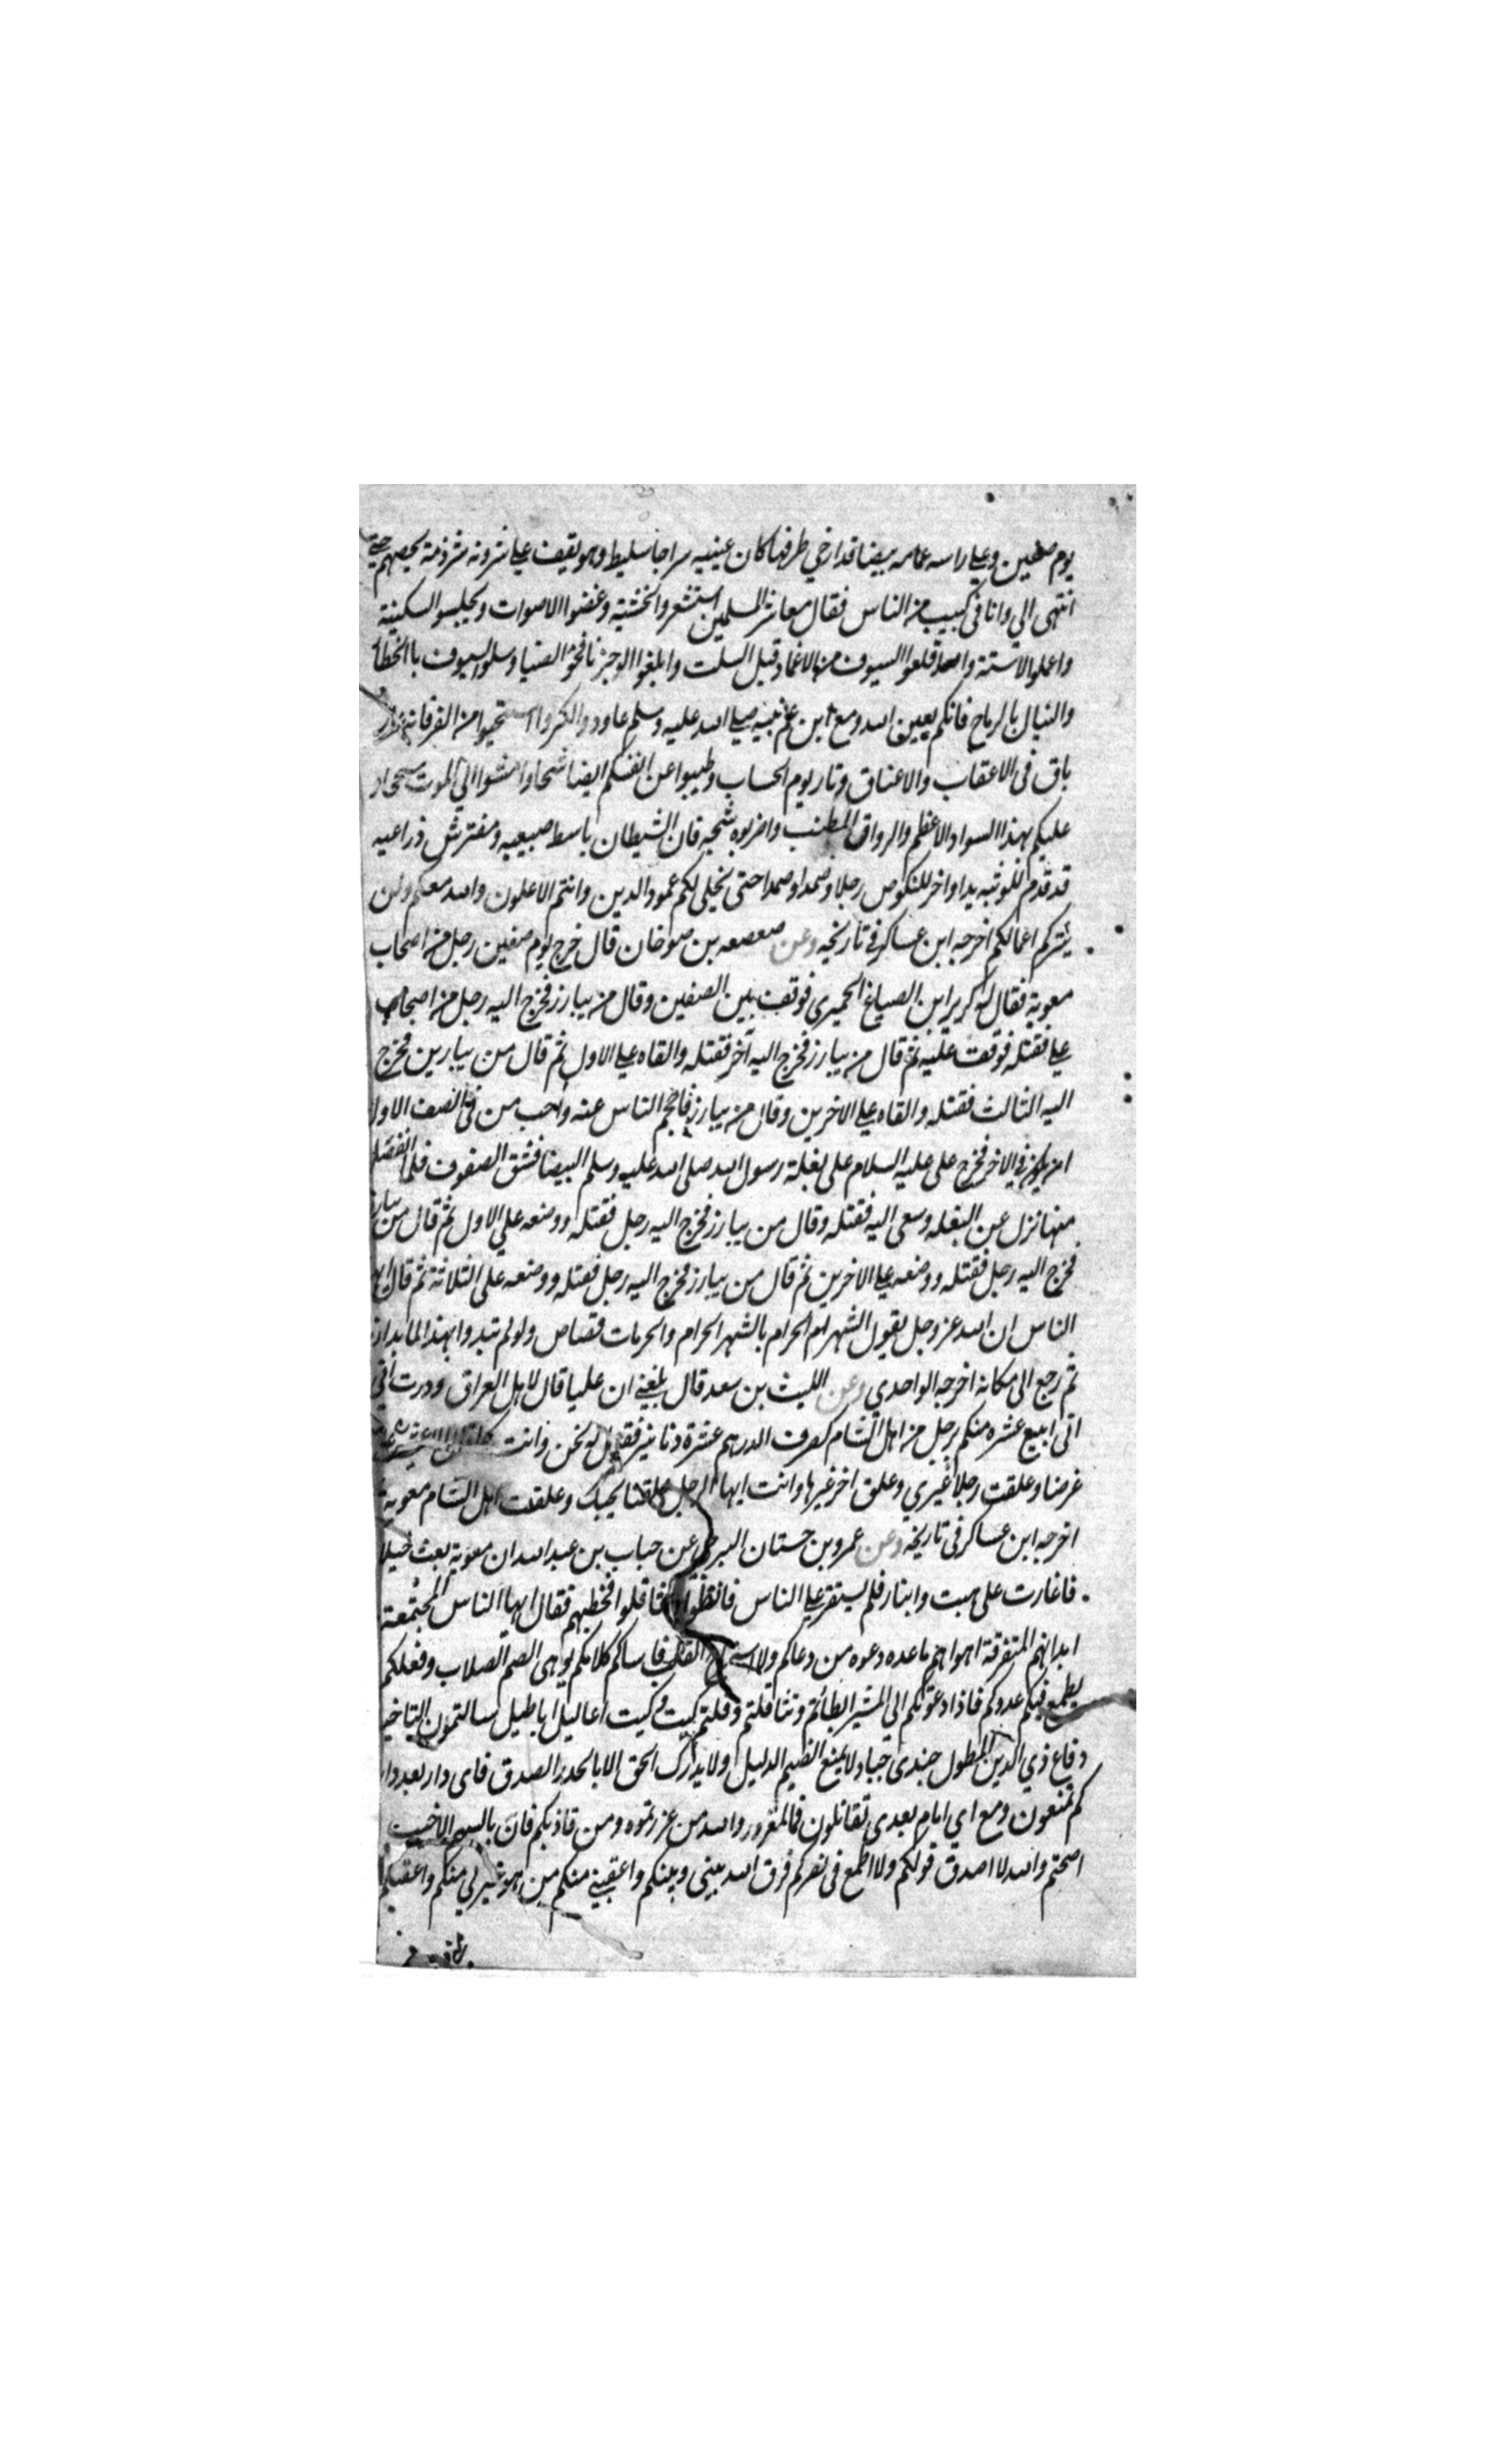 يوم صفين وعلي راسه عمامه بيضا قد ارخي طرفها كان عينيه سراجا سليط وهو يقف علي شرذمة شرذمة يحضهم حتى
انتهى الي وانا في كبيب من الناس فقال معاشر المسلمين استشعروا الخشية وغضوا الاصوات وتجلببوا السكينة
واعملوا الاسنة واقلعوا السيوف من الاغماد قبل السلت والحظوا الوجز نافحوا الضبا وسلوا السيوف بالخطا
والنبال بالرماح فانكم بعين الله ومع ابن عم نبيه صلى الله عليه وسلم عاودوا الكر واستحيوا من الفر فانه عار
باق في الاعقاب والاعناق ونار يوم الحساب وطيبوا عن انفسكم ايضا شحا وامشوا الي الموت سحجا و
عليكم بهذا السواد الاعظم والرواق المطنب واضربوه ثبجه فان الشيطان باسط صبيعيه ومفترش ذراعيه
قد قدم للوثبه يدا واخر للنكوص رجلا وصمدا وصمدا حتى ينجلي لكم عمود الدين وانتم الاعلون والله معكم ولن
يتركم اعمالكم اخرجه ابن عساكر في تاريخه وعن صعصعه بن صوحان قال خرج يوم صفين رجل من اصحاب
معوية فقال له كريز ابن الصباغ الحميري فوقف بين الصفين وقال من يبارز فخرج اليه رجل من اصحاب
علي فقتله فوقف عليه ثم قال من يبارز فخرج اليه آخر فقتله والقاه علي الاول ثم قال من يبارز فخرج
اليه الثالث فقتله والقاه علي الاخرين وقال من يبارز فاحجم الناس عنه واحب من في الصف الاول
ان يكون في الاخر فخرج على عليه السلام على بغلة رسول الله صلى الله عليه وسلم البيضا فشق الصفوف فلما انفصل
منها نزل عن البغله وسعى اليه فقتله وقال من يبارز فخرج اليه رجل فقتله ووضعه علي الاول ثم قال من يبارز
فخرج اليه رجل فقتله ووضعه علي الاخرين ثم قال من يبارز فخرج اليه رجل فقتله ووضعه على الثلاثة ثم قال ايها
الناس ان الله عز وجل يقول الشهر الحرام بالشهر الحرام والحرمات قصاص ولو لم تبدوا بهذا لما بدانا
ثم رجع الى مكانه اخرجه الواحدي وعن الليث بن سعد قال بلغني ان عليا قال لاهل العراق وددت اني
اني ابيع عشره منكم برجل من اهل الشام كصرف الدرهم عشرة دنانير فقيل له نحن وانت
غرضا وعلقت رجلا غيري وعلق اخر غيرها وانت ايها الرجل علقنا بحبك وعلقت اهل الشام معوية
اخرجه ابن عساكر في تاريخه وعن عمرو بن حستان البرجمي عن حباب بن عبد الله ان معوية بعث خيلا
فاغارت على هيت وانبار فلم يستقر علي الناس فانظوا فثاقلوا فخطبهم فقال ايها الناس المجتمعة
ابدانهم المتفرقة اهواهم ما عده دعوه من دعاكم ولا استراح القلب فاساكم كلامكم يوهى الصم الصلاب وفعلكم
يطمع فيكم عدوكم فاذا دعوتكم الي المشير ابطاتم وتثاقلتم وقلتم كيت وكيت اعاليل اباطيل سالتمون التاخير
دفاع ذي الدين المطول جندى جباد لا يمنع الضيم الدليل ولا يدرك الحق الا بالحدر الصدق فاى دار بعد دار
كم تمنعون ومع اي امام بعدي تقاتلون فالمغرور والله من غررتموه ومن فاز بكم فاز بالسهم الاخيب
اصحتم والله لا اصدق قولكم ولا اطمع في نصركم فرق الله بيني وبينكم واعقبني منكم من هو خير لي منكم واعقبكم